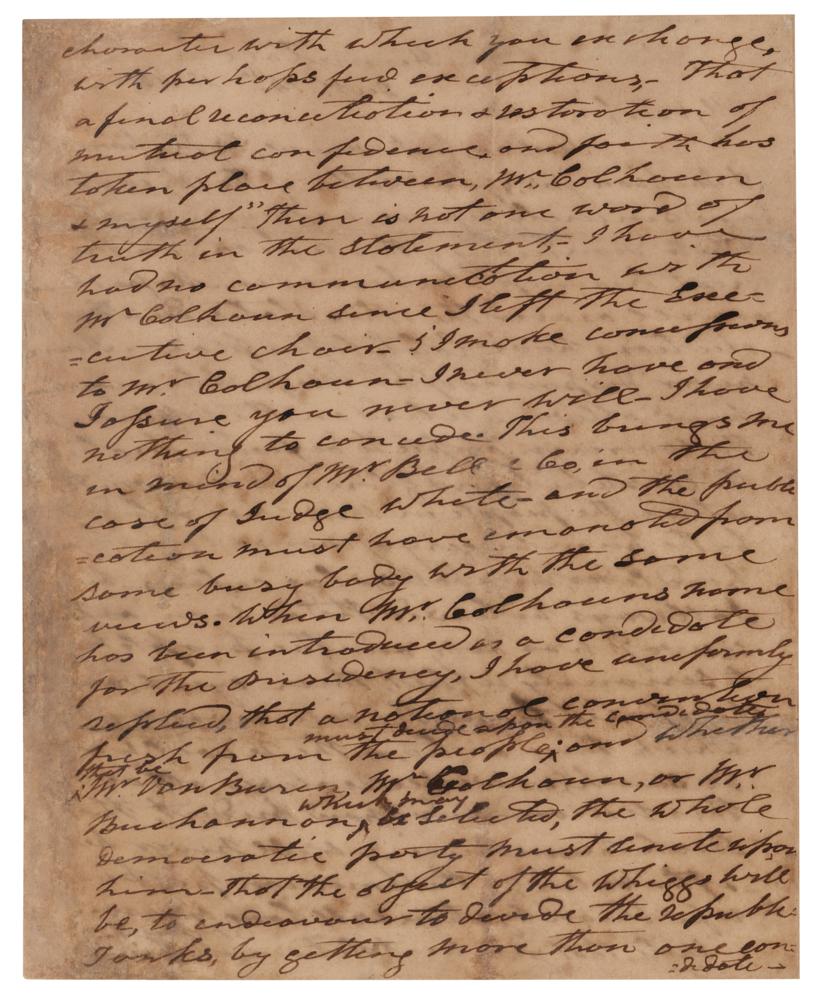 character with which you exchange,
with perhaps few exceptions,- That
a final reconciliation & restoration of
mutual confidence, and faith has
taken place between, Mr. Colhoun
& myself" There is not one word of
truth in the statement,- I have
had no communication with
Mr Colhoun since I left the Exe=
=cutive chair- I make concessions
to Mr. Colhoun- I never have and
I assure you never will- I have
nothing to concede. This brings me
in mind of Mr Bell & Co, in the
case of Judge White- and the publi
=cation must have emanated from
some busy body with the same
views. When Mr. Colhouns name
has been introduced as a candidate
for the Presidency, I have uniformly
replied, that a national convention
must decide upon the candidate
fresh from the people; and whether
that be
Mr Van Buren, Mr Colhoun, or Mr
which may
Buchannon, be selected, the whole
democratic party must unite upon
him- That the object of the Whiggs will
be, to endeavour to devide the republi.
Tanks, by getting more than one con-
=didate-